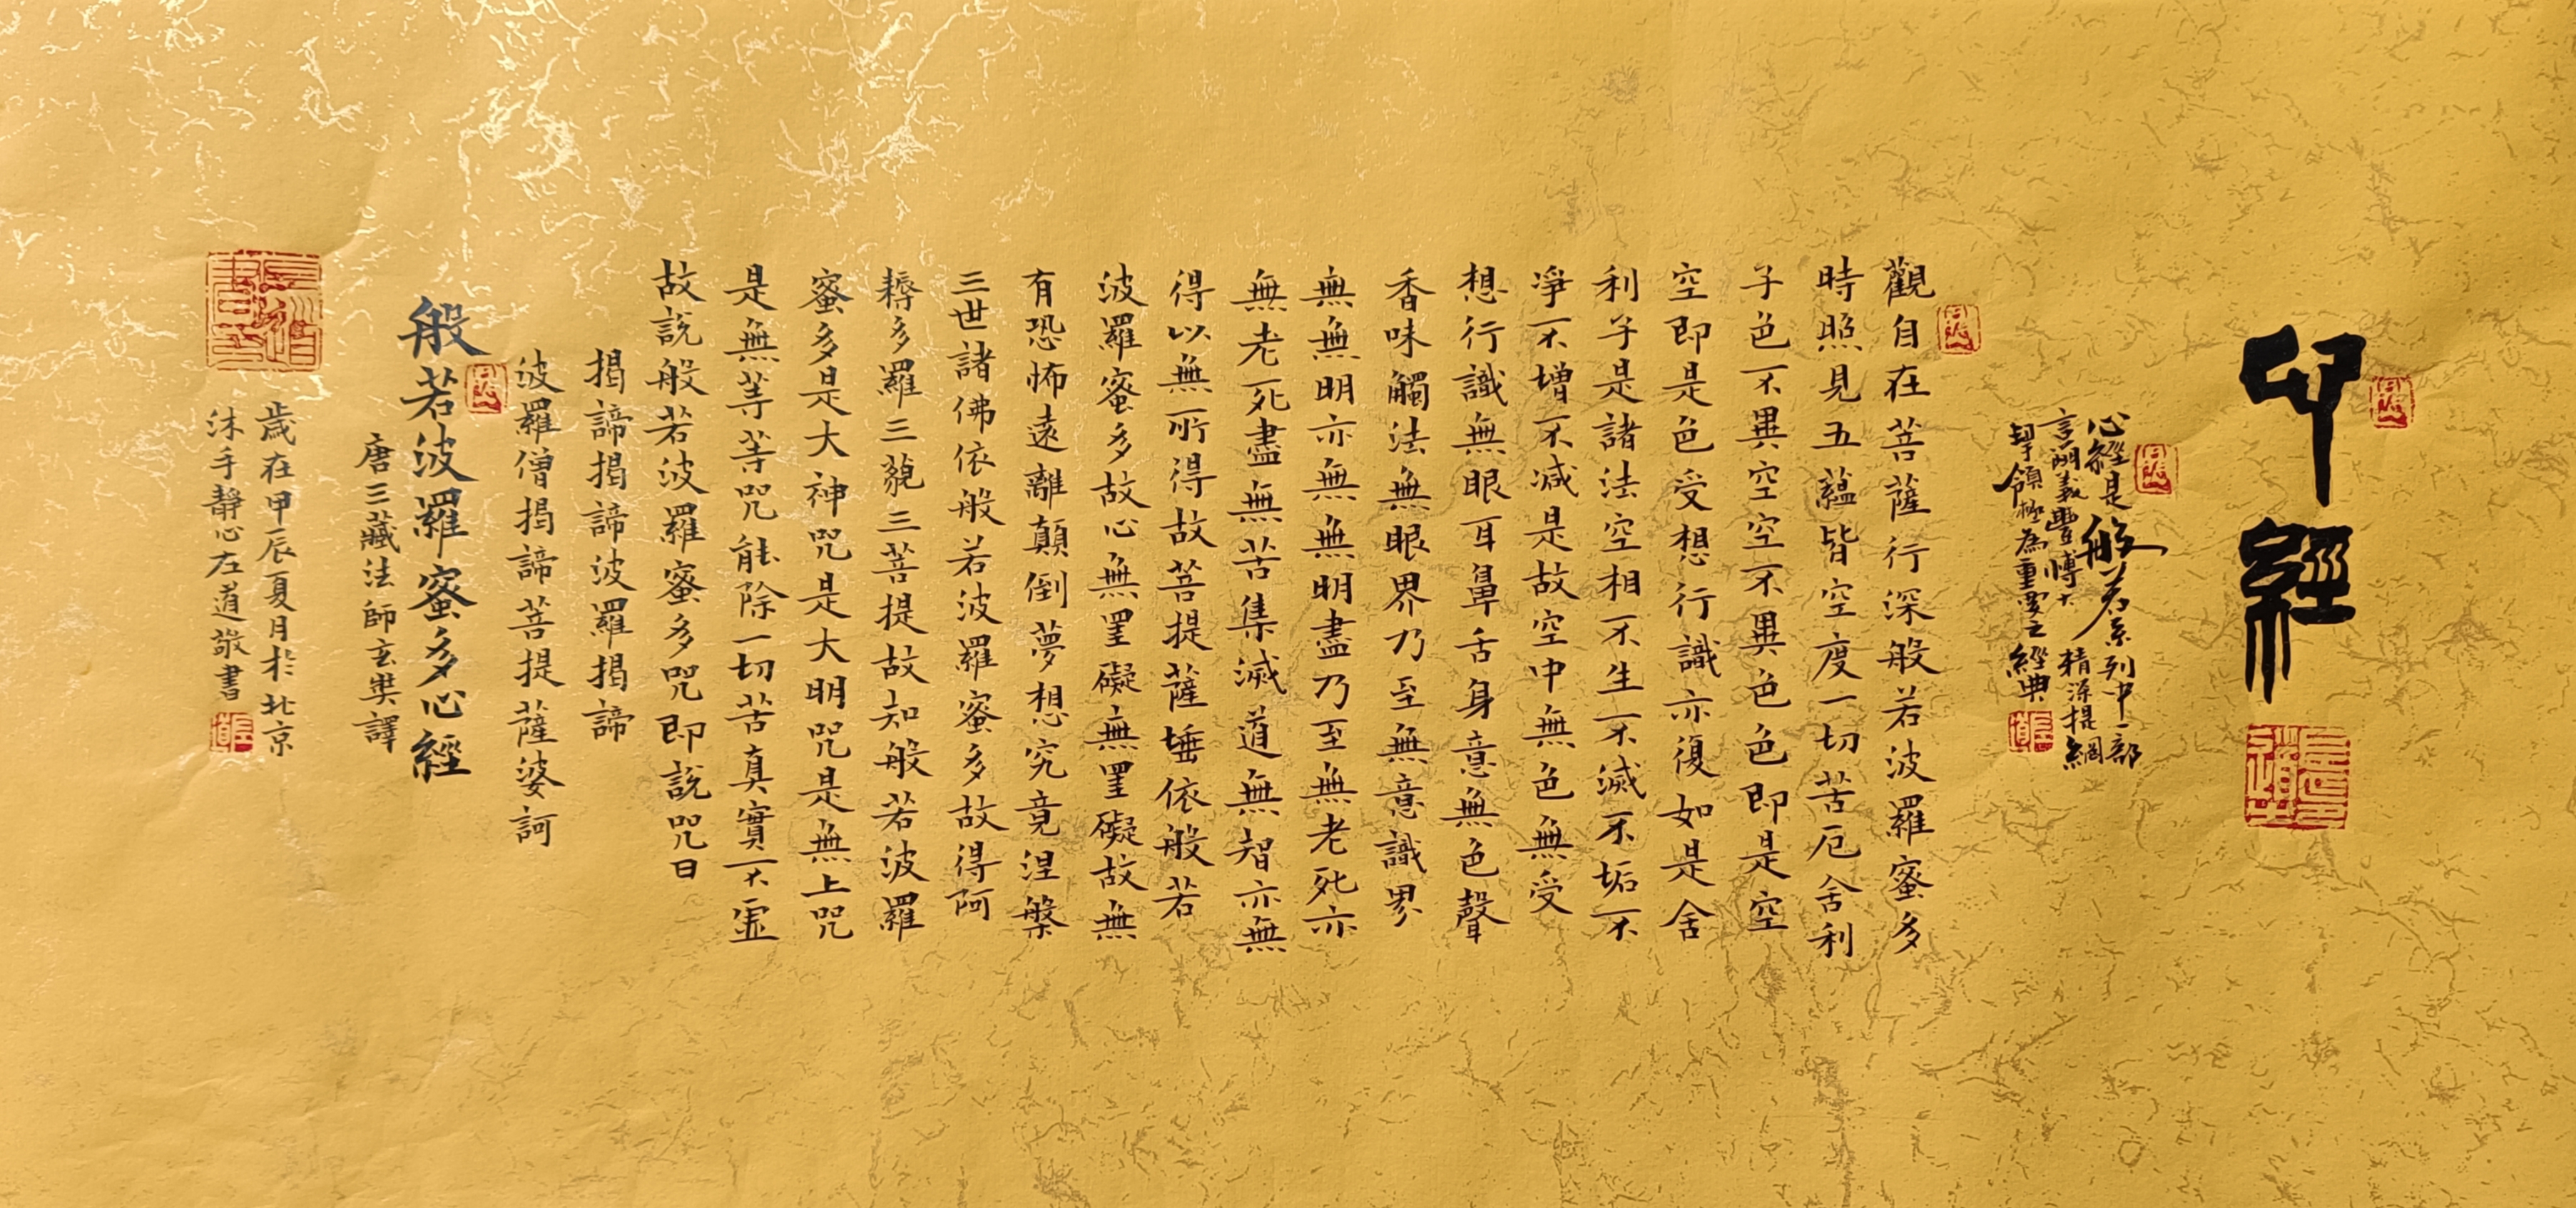 心經
心經是般若系列中一部
言簡義豐博大精深提綱
挈領極為重要之經典
觀自在菩薩行深般若波羅蜜多
時照見五蘊皆空度一切苦厄舍利
子色不異空空不異色色即是空
空即是色受想行識亦復如是舍
利子是諸法空相不生不滅不垢不
淨不增不減是故空中無色無受
想行識無眼耳鼻舌身意無色聲
香味觸法無眼界乃至無意識界
無無明亦無無明盡乃至無老死亦
無老死盡無苦集滅道無智亦無
得以無所得故菩提薩埵依般若
波羅蜜多故心無罣礙無罣礙故無
有恐怖遠離顛倒夢想究竟涅槃
三世諸佛依般若波羅蜜多故得阿
耨多羅三藐三菩提故知般若波羅
蜜多是大神咒是大明咒是無上咒
是無等等咒能除一切苦真實不虛
故說般若波羅蜜多咒即說咒曰
揭諦揭諦波羅揭諦
波羅僧揭諦菩提薩婆訶
般若波羅蜜多心經
唐三藏法師玄奘譯
歲在甲辰夏月於北京
沐手靜心左道敬書